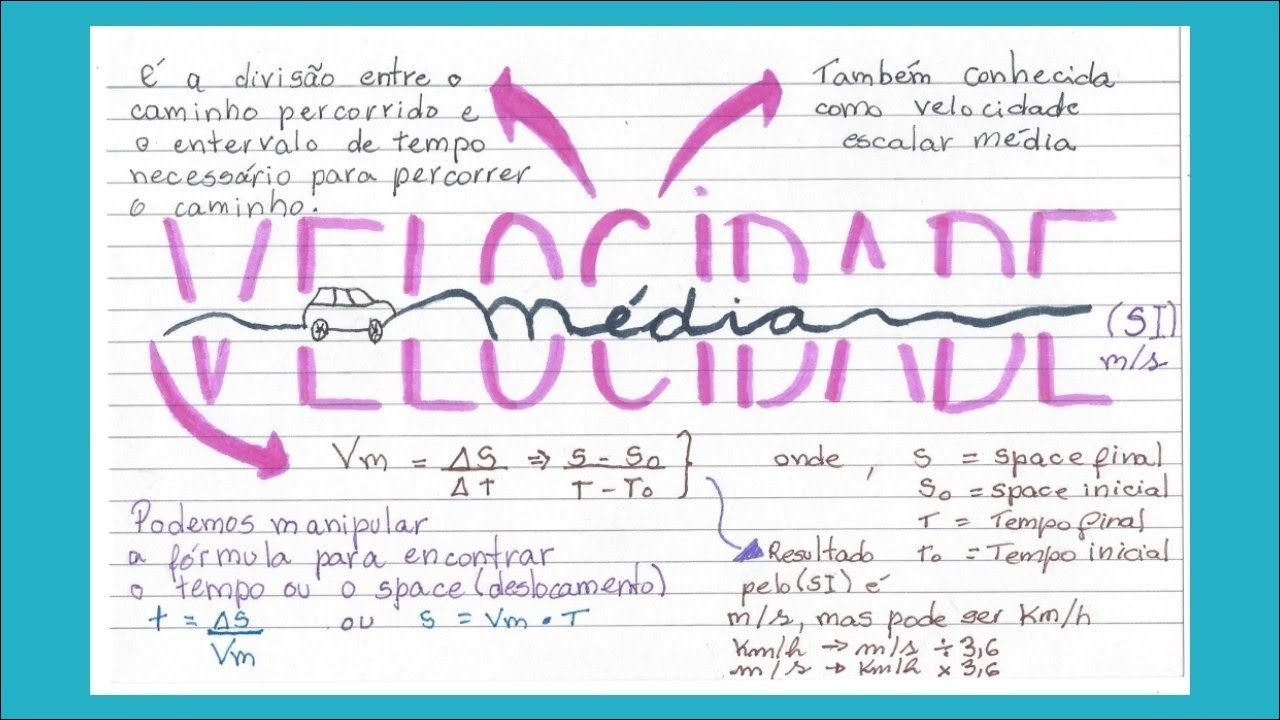 é a divisão entre o
caminho percorrido e
o entervalo de tempo
necessário para percorrer
o caminho.
Também conhecida
como velocidade
escalar média
VELOCIDADE
média
VELOCIDADE
(SI)
m/s
Vm = ΔS/ΔT ⇒ S - S₀/T - T₀ }
onde, S = space final
S₀ = space inicial
T = Tempo final
T₀ = Tempo inicial
Podemos manipular
a fórmula para encontrar
o tempo ou o space (deslocamento)
t = ΔS/Vm ou S = Vm • T
Resultado
pelo (SI) é
m/s, mas pode ser Km/h
Km/h → m/s ÷ 3,6
m/s → Km/h × 3,6